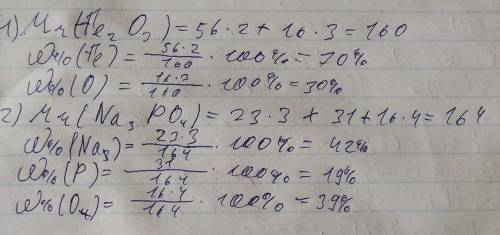 1) Mr(Fe₂O₃) = 56·2 + 16·3 = 160
W%(Fe) = 56·2/160 · 100% = 70%
W%(O) = 16·3/160 · 100% = 30%
2) Mr(Na₃PO₄) = 23·3 + 31 + 16·4 = 164
W%(Na₃) = 23·3/164 · 100% = 42%
W%(P) = 31/164 · 100% = 19%
W%(O₄) = 16·4/164 · 100% = 39%